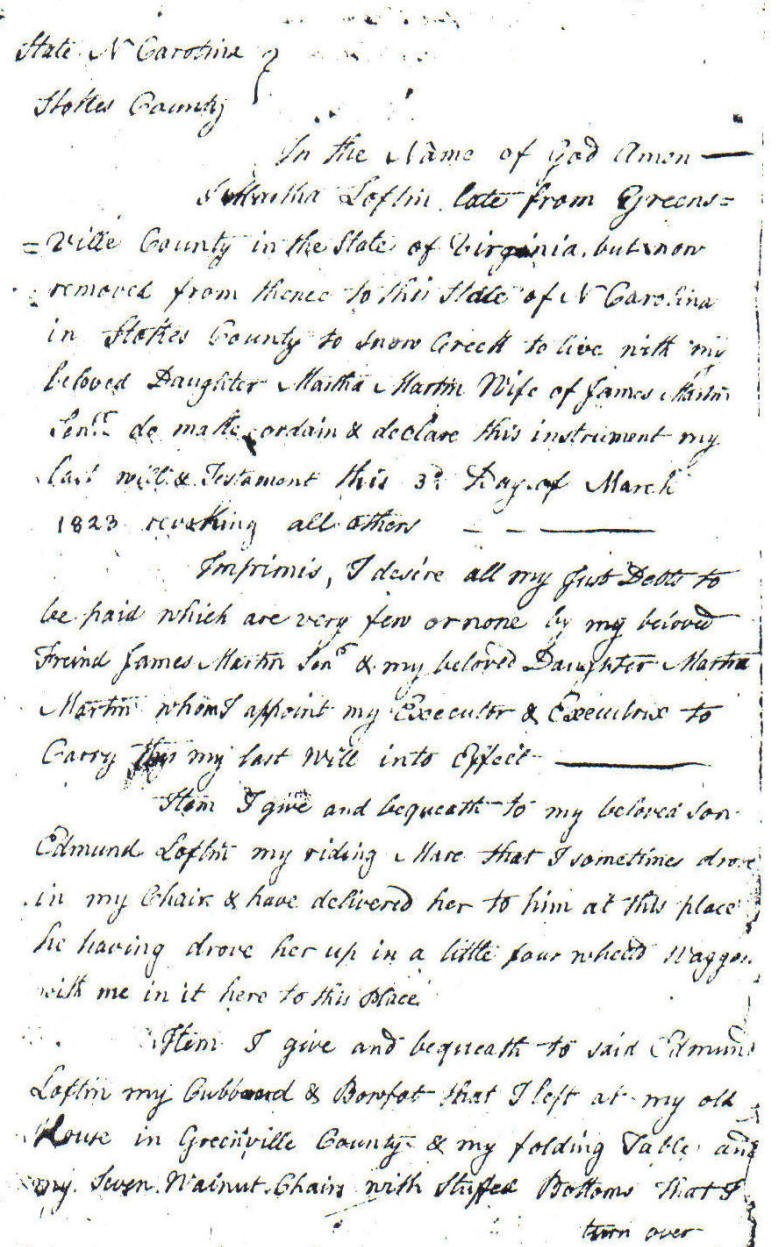 State N Carolina }
Stokes County
In the Name of God Amen —
I Martha Loftin late from Greens=
=Ville County in the State of Virginia. but now
removed from thence to this State of N Carolina
in Stokes County to Snow Creek to live with my
beloved Daughter Martha Martin Wife of James Martin
Senr. do make, ordain & declare this instrument my
last will & Testament this 3d Day of March
1823 revoking all others — — ———
Imprimis, I desire all my Just Debts to
be paid which are very few or none by my beloved
Freind James Martin Senr & my beloved Daughter Martha
Martin whom I appoint my Executor & Executrix to
Carry this my last Will into Effect ———
Item I give and bequeath to my beloved Son
Edmund Loftin my riding Mare that I sometimes drove
in my Chair & have delivered her to him at this place
he having drove her up in a little four wheeld Waggon
with me in it here to this Place
Item I give and bequeath to said Edmund
Loftin my Cubboard & Bowfat that I left at my old
House in Greenville County & my folding Table and
my Seven Walnut Chairs with Stuffed Bottoms that I
turn over